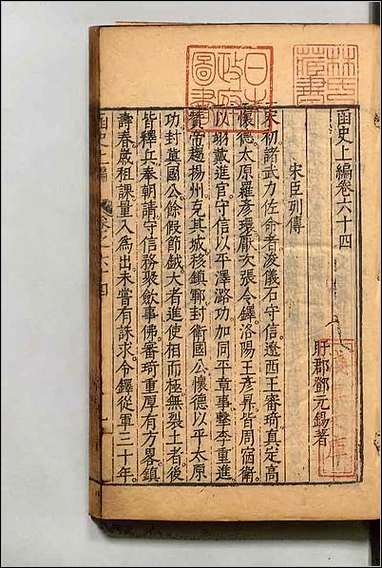 函史上編卷六十四
盱郡鄧元錫著
宋臣列傳
宋初諸武力佐命者浚儀石守信遼西王審琦真定高
懷德太原羅彥瓌厭次張令鐸洛陽王彥昇皆周宿衛
以翊戴進官守信以平澤潞功加同平章事擊李重進
贊帝趨揚州克其城移鎮鄆封衛國公懷德以平太原
功封冀國公餘假節鉞大者進使相而極無裂土者後
皆釋兵奉朝請守信務聚歛事佛審琦重厚有方畧鎮
壽春歲租課量入為出未嘗有誅求令鐸從軍三十年
函史上編
卷之六十四
日本
政府
圖書
林氏
藏書